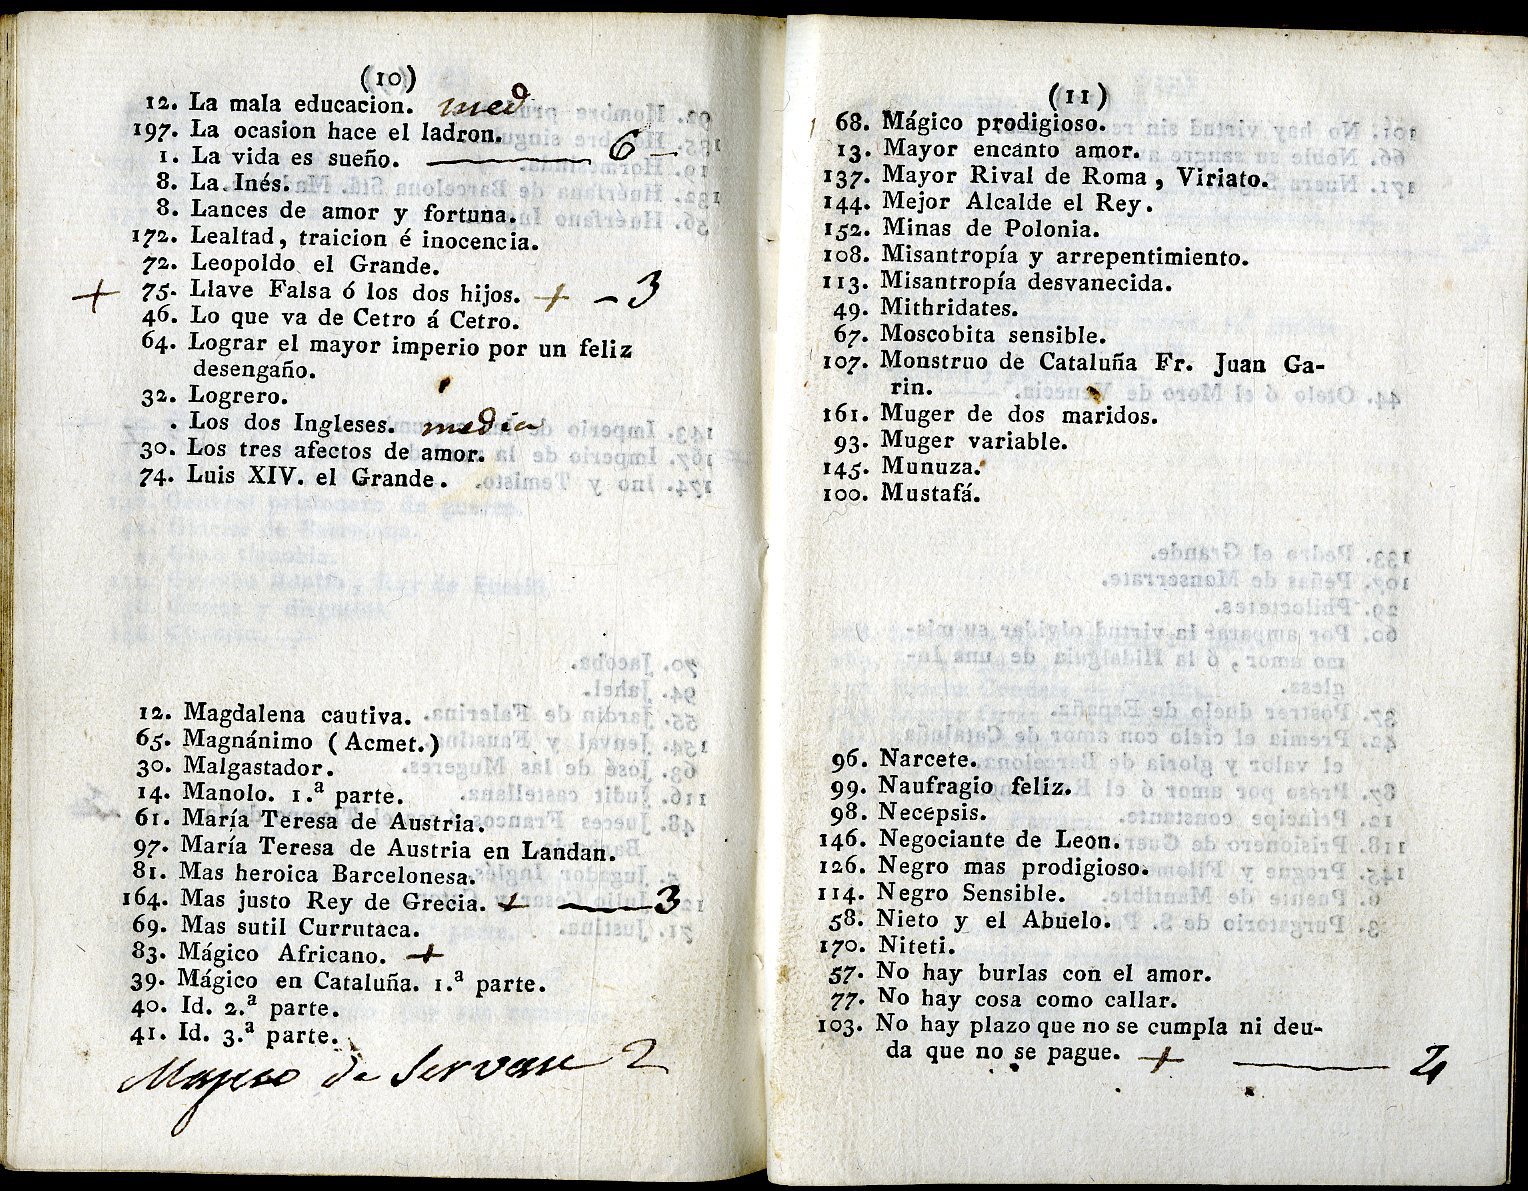 (10)
12. La mala educacion. med
197. La ocasion hace el ladron.
1. La vida es sueño. 6
8. La Inés.
8. Lances de amor y fortuna.
172. Lealtad, traicion é inocencia.
72. Leopoldo el Grande.
+ 75. Llave Falsa ó los dos hijos. + - 3
46. Lo que va de Cetro á Cetro.
64. Lograr el mayor imperio por un feliz
desengaño.
32. Logrero.
. Los dos Ingleses. media
30. Los tres afectos de amor.
74. Luis XIV. el Grande.
12. Magdalena cautiva.
65. Magnánimo (Acmet.)
30. Malgastador.
14. Manolo. 1.ª parte.
61. María Teresa de Austria.
97. María Teresa de Austria en Landan.
81. Mas heroica Barcelonesa.
164. Mas justo Rey de Grecia. + 3
69. Mas sutil Currutaca.
83. Mágico Africano. +
39. Mágico en Cataluña. 1.ª parte.
40. Id. 2.ª parte.
41. Id. 3.ª parte.
de Servan 2
(11)
68. Mágico prodigioso.
13. Mayor encanto amor.
137. Mayor Rival de Roma, Viriato.
144. Mejor Alcalde el Rey.
152. Minas de Polonia.
108. Misantropía y arrepentimiento.
113. Misantropía desvanecida.
49. Mithridates.
67. Moscobita sensible.
107. Monstruo de Cataluña Fr. Juan Ga-
rin.
161. Muger de dos maridos.
93. Muger variable.
145. Munuza.
100. Mustafá.
96. Narcete.
99. Naufragio feliz.
98. Necepsis.
146. Negociante de Leon.
126. Negro mas prodigioso.
114. Negro Sensible.
58. Nieto y el Abuelo.
170. Niteti.
57. No hay burlas con el amor.
77. No hay cosa como callar.
103. No hay plazo que no se cumpla ni deu-
da que no se pague. + 4